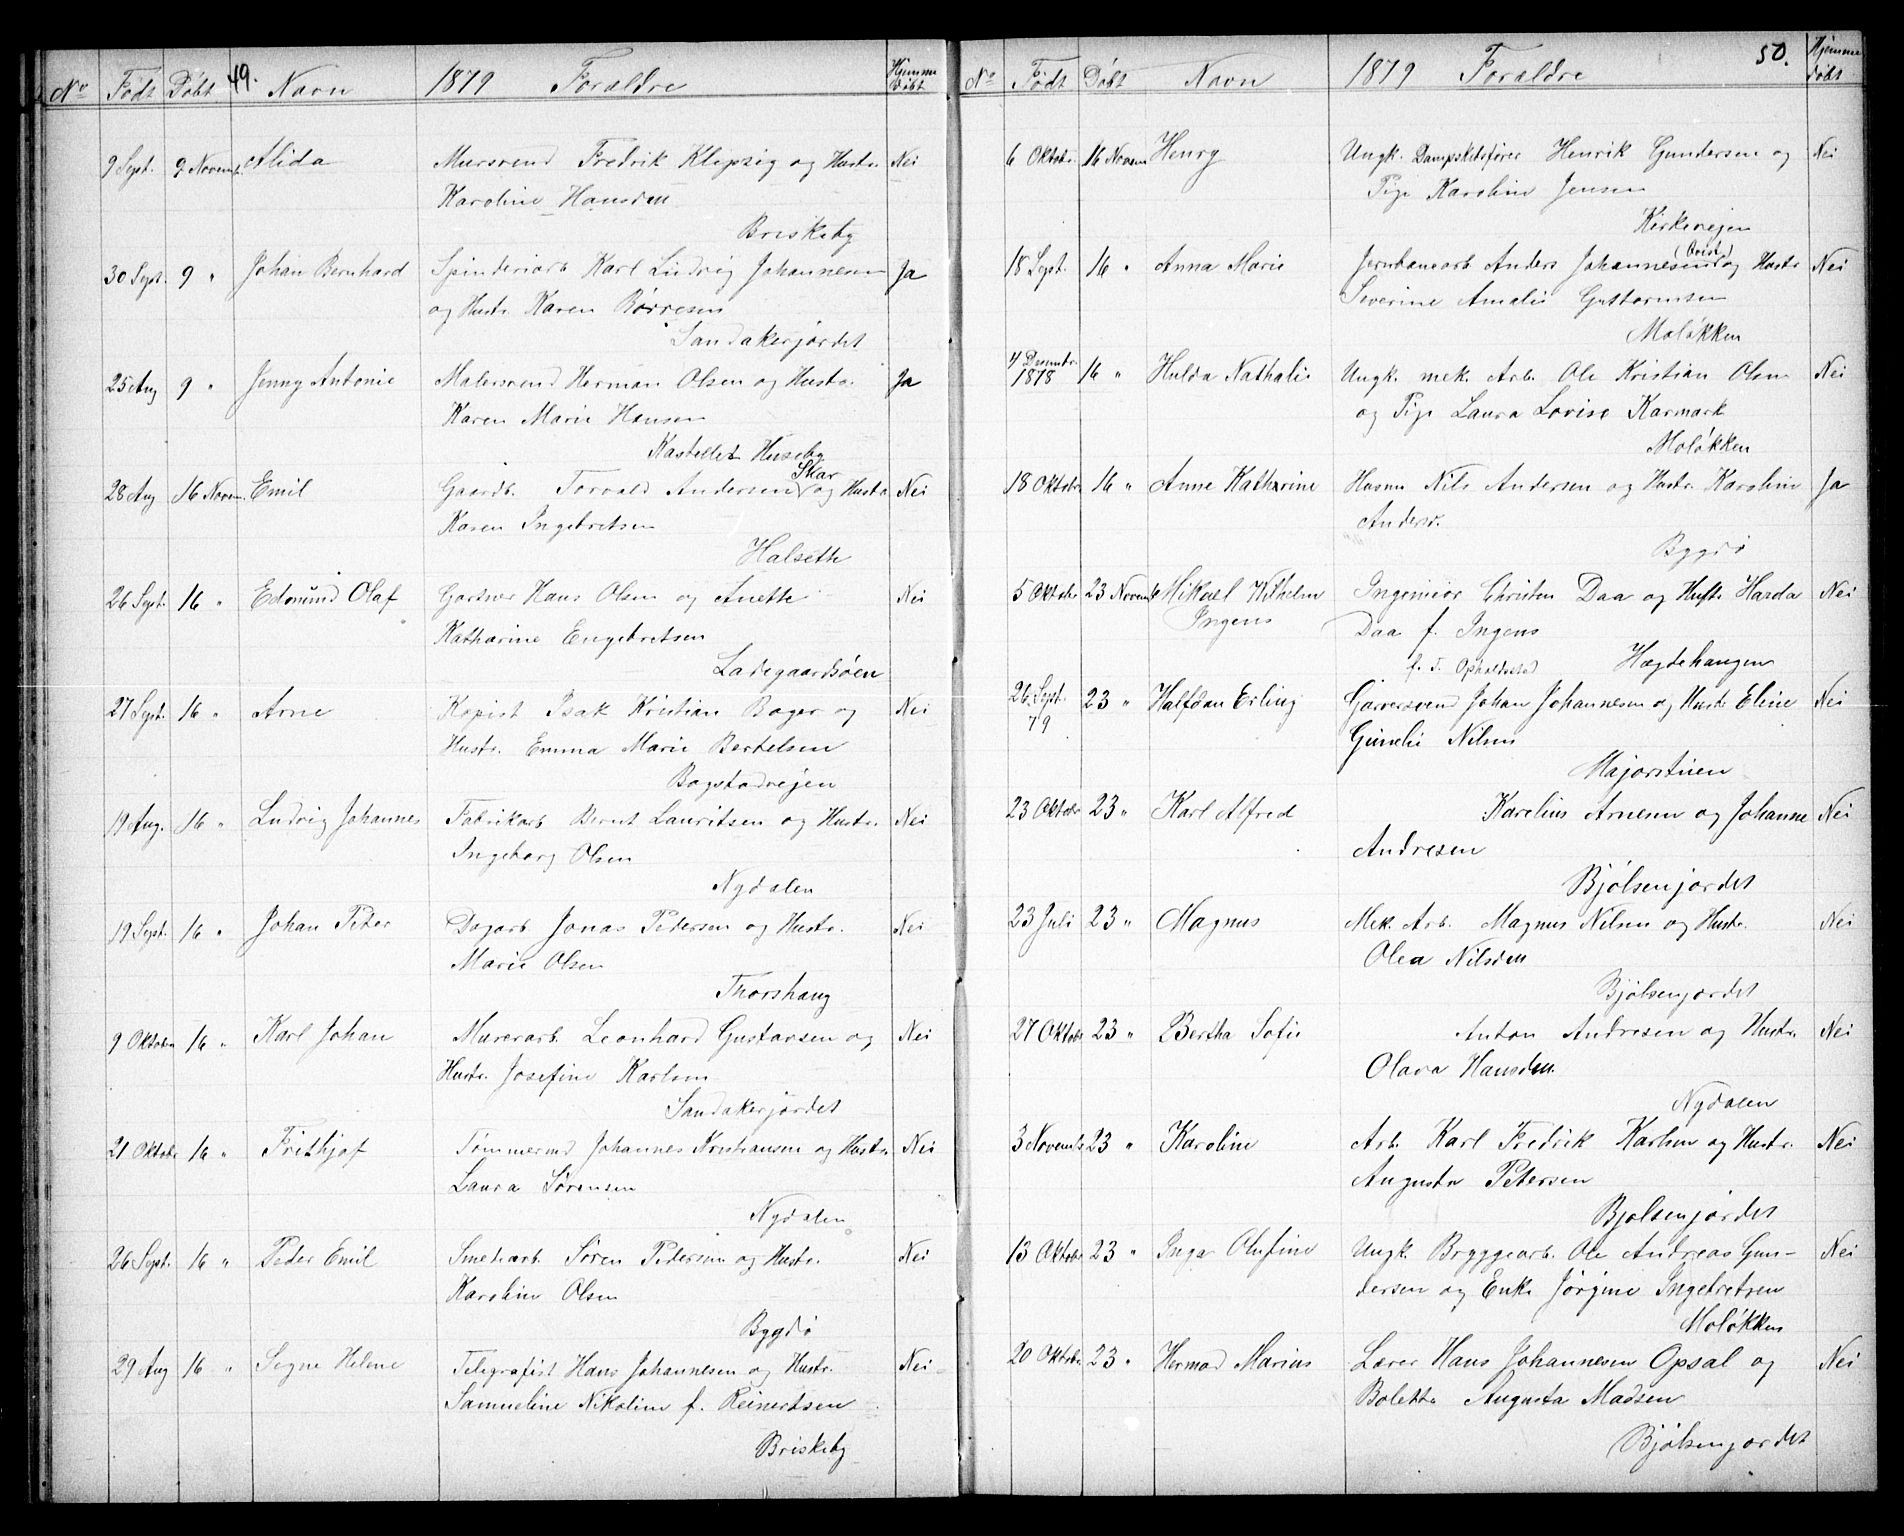 49.
No Født Døbt Navn 1879 Forældre Hjemme døbt
9 Sept. 9 Novemb. Alida Mursvend Fredrik Klipzig og Hustr. Nei
Karoline Hansden
Briskeby
30 Sept. 9 " Johan Bernhard Spinderiarb Karl Ludvig Johannesen Ja
og Hustr. Karen Børresen
Sandakerjordet
25 Aug 9 " Jenny Antonie Malersvend Herman Olsen og Hustr. Ja
Karen Marie Hansen
Kastellet Huseby
28 Aug 16 Novem. Emil Gaardb. Torvald Andersen Skar og Hustr Nei
Karen Ingebretsen
Halseth
26 Sept. 16 " Edmund Olaf Gartner Hans Olsen og Anette Nei
Katharine Engebretsen
Ladegaardsøen
27 Sept. 16 " Arne Kopist Isak Kristian Boger og Nei
Hustr. Emma Marie Bertelsen
Bogstadvejen
19 Aug. 16 " Ludvig Johannes Fabrikarb Bernt Lauritsen og Hustr. Nei
Ingeborg Olsen
Nydalen
19 Sept. 16 " Johan Peter Dagarb Jonas Petersen og Hustr. Nei
Marie Olsen
Thorshaug
9 Oktober 16 " Karl Johan Murerarb. Leonhard Gustavsen og Nei
Hustr. Josefine Karlsen
Sandakerjordet
21 Oktobr 16 " Frithjof Tømmermd Johannes Kristiansen og Hustr. Nei
Laura Sørensen
Nydalen
26 Sept. 16 " Peder Emil Smedarb. Søren Pedersen og Hustr. Nei
Karoline Olsen
Bygdø
29 Aug 16 " Signe Helene Telegrafist Hans Johannesen og Hustr. Nei
Samueline Nikoline f. Reinertsen
Briskeby
50.
No Født Døbt Navn 1879 Forældre Hjemme døbt
6 Oktobr. 16 Novem Henry Ungk. Dampskibsfører Henrik Gundersen og Nei
Pige Karoline Jensen
Kirkevejen
18 Sept. 16 " Anna Marie Jernbanearb Anders Johannesen og Hustr Nei
Severine Amalie Guttormsen
Moløkken
4 Decembr. 1878 16 " Hulda Nathalie Ungk. mek. Arb. Ole Kristian Olsen Nei
og Pige Laura Lovise Karmark
Moløkken
18 Oktobr 16 " Anne Kathrine Husmd Nils Andersen og Hustr. Karoline Ja
Andersr.
Bygdø
5 Oktobr 23 Novemb Mikael Wilhelm Ingens Ingeniør Christen Daa og Hustr. Harda Nei
Daa f. Ingens
f. T. Opholdssted Hægdehaugen
26 Sept. 79 23 " Halfdan Erling Garversvend Johan Johannesen og Hustr Eline Nei
Gunelie Nilsen
Majorstuen
23 Oktobr 23 " Karl Alfred Karelius Arnesen og Johanne Nei
Andresen
Bjølsenjordet
23 Juli 23 " Magnus Mek. Arb. Magnus Nilsen og Hustr. Nei
Olea Nilsden
Bjølsenjordet
27 Oktobr 23 " Bertha Sofie Anton Andresen og Hustr. Nei
Olava Hansden
Nydalen
3 Novembr 23 " Karoline Arb. Karl Fredrik Karlsen og Hustr. Nei
Augusta Petersen
Bjølsenjordet
13 Oktobr 23 " Inga Olufine Ungk. Bryggearb. Ole Andreas Gun- Nei
dersen og Enke Jørgine Ingebretsen
Moløkken
20 Oktobr 23 " Hermod Marius Lærer Hans Johannesen Opsal og Nei
Bolette Augusta Madsen
Bjølsenjordet